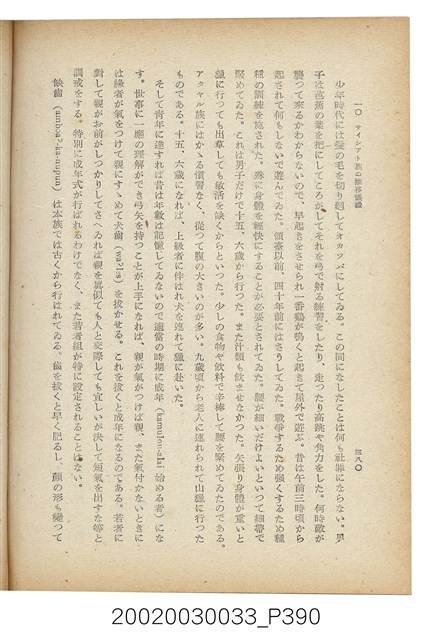 一〇 サイシアト族の推移儀禮
三八〇
少年時代には髮の毛を切り廻してオカツパにしてゐる。この間になしたことは何も社罪にならない。男
子は芭蕉の葉を把にしてころがしてそれを弓で射る練習をしたり、走つたり高跳や角力をした。何時敵が
襲つて來るかわからないので、早起きをさせられ一番鷄が鳴くと起きて屋外で遊ぶ。昔は午前三時頃から
起されて何もしないで遊んでゐた。領臺以前、四十年前にはさうしてゐた。戰爭するため强くするため種
種の訓練を施された。殊に身體を輕快にすることが必要とされてゐた。腰が細いだけよいといつて細帶で
緊めてゐた。これは男子だけで十五、六歲から行つた。また汁類も飮ませなかつた。矢張り身體が重いと
獵に行つても出草しても敏活を缺くからといつた。少しの食物や飮料で辛棒して腰を緊めてゐたのである。
アタヤル族にはかゝる慣習なく、從つて腹の大きいのが多い。九歲頃から老人に連れられて山獵に行つた
ものである。十五、六歲になれば、上級者に伴はれ犬を連れて獵に赴いた。
そして靑年に達すれば昔は年數は記憶してゐないので適當の時期に成年（kamulos-aki 始める者）にな
す。世事に一應の理解ができ弓矢を持つことが上手になれば、親が氣がつけば親、また氣付かないときに
は緣者が氣をつけて親にすゝめて犬齒（walis）を拔かせる。これを拔くと成年になるのである。若者に
對して親がお前がしつかりしてさへゐれば親を眞似ても人と交際しても宜しいが決して短氣を出すな等と
訓戒をする。特別に成年式が行ばれるわけでなく、また若者組が特に設定されることはない。
缺齒 は本族では古くから行はれてゐる。齒を拔くと早く肥るし、顏の形も變つて
20020030033_P390